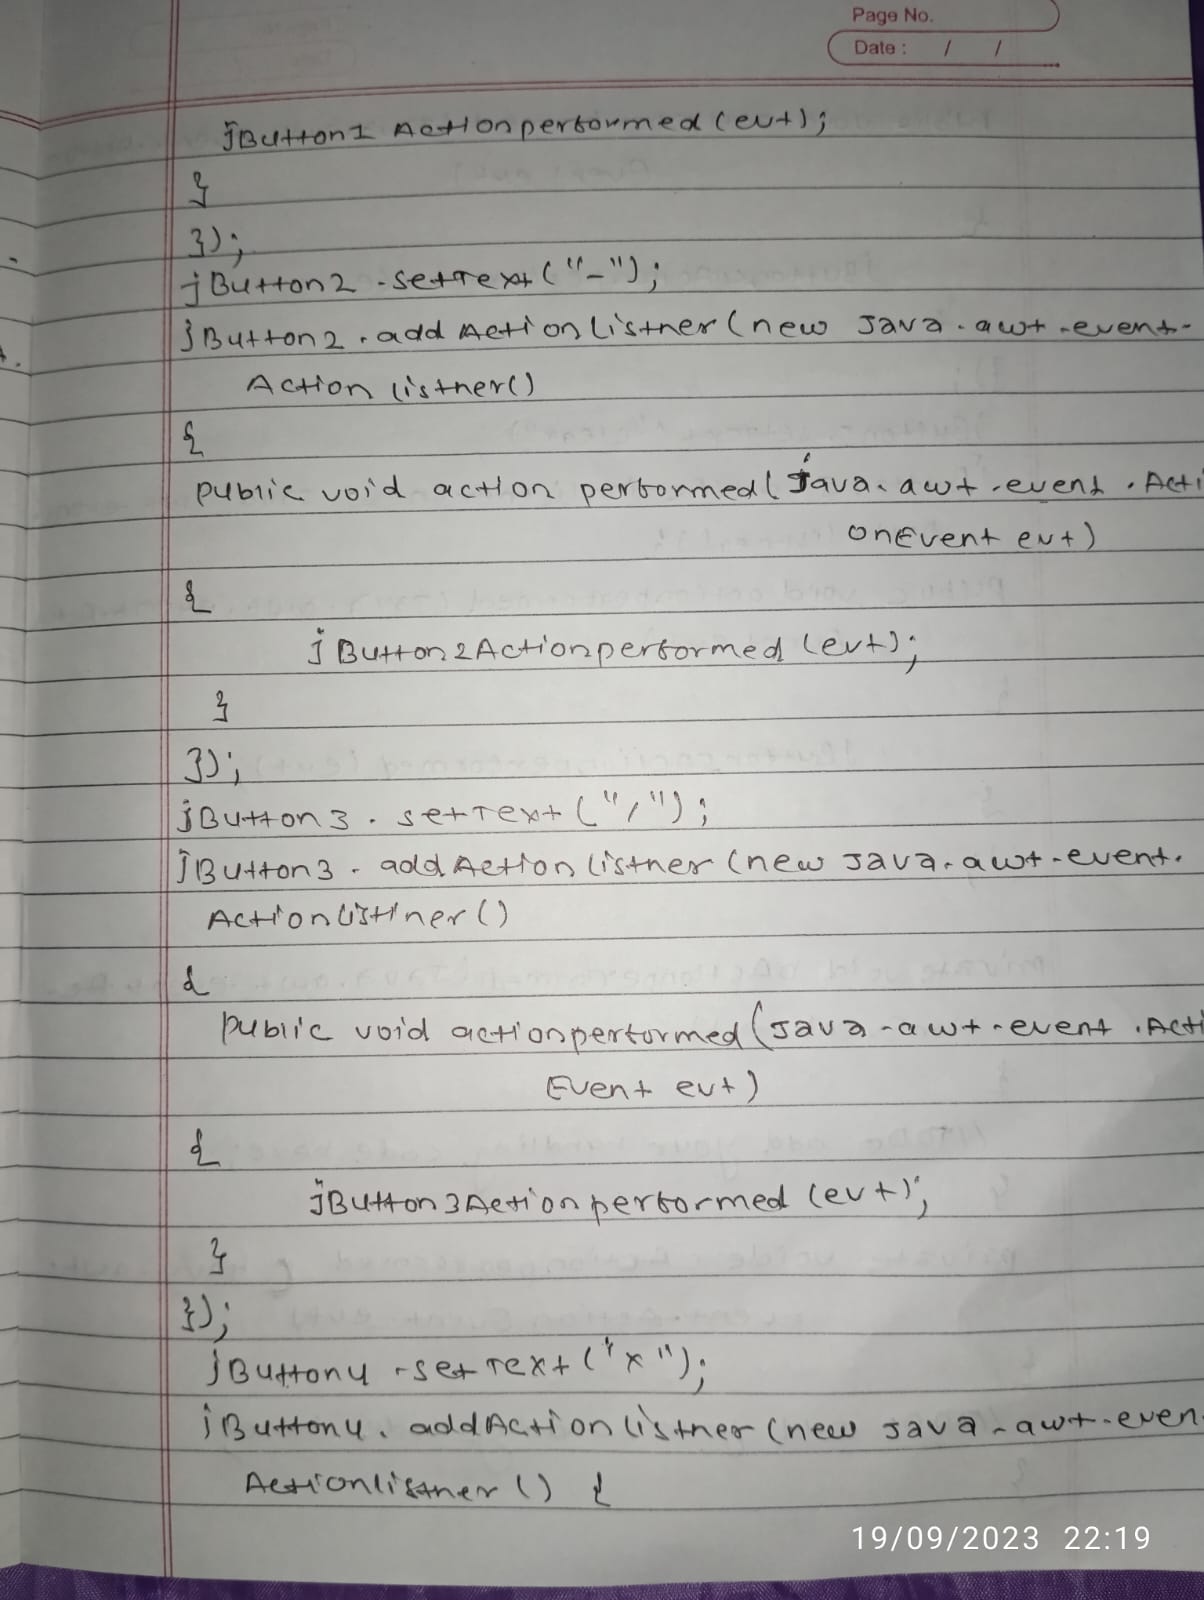 Page No.
Date : / /
jButton1 Actionperformed (evt);
}
});
jButton2 .setText ("-");
jButton2 . add Action listner (new Java . awt .event.
Action listner()
{
public void action performed (java. awt .event . Acti
onEvent evt)
{
jButton2Actionperformed (evt);
}
});
jButton3 . setText ("/");
jButton3 . addAction listner (new Java. awt .event.
Actionlistiner ()
{
public void actionperformed (Java .awt .event .Acti
Event evt)
{
jButton3Actionperformed (evt);
}
});
jButton4 .setText ("x");
jButton4. addAction listner (new Java . awt .even
Actionlistner () {
19/09/2023 22:19